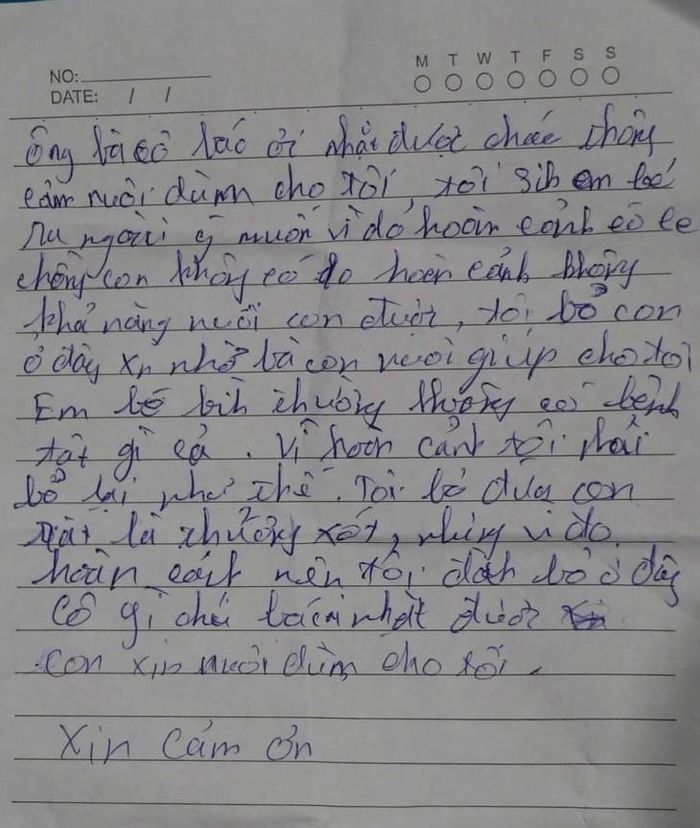 M T W T F S S
NO:
DATE: / /
Ông bà cô bác ơi nhặt được cháu thông
cảm nuôi dùm cho tôi, tôi sih em bé
ngoài ý muốn vì do hoàn cảnh éo le
chồng con không có do hoàn cảnh không
khả năng nuôi con được, tôi bỏ con
ở đây xin nhờ bà con nuôi giúp cho tôi
Em bé bìh thường không có bệnh
tật gì cả. Vì hoàn cảnh tôi phải
bỏ lại như thế. Tôi bỏ đứa con
rất là thương xót, nhưng vì do
hoàn cảnh nên tôi đành bỏ ở đây
Cô gì chú bác nhặt được
con xin nuôi dùm cho tôi.
Xin cảm ơn